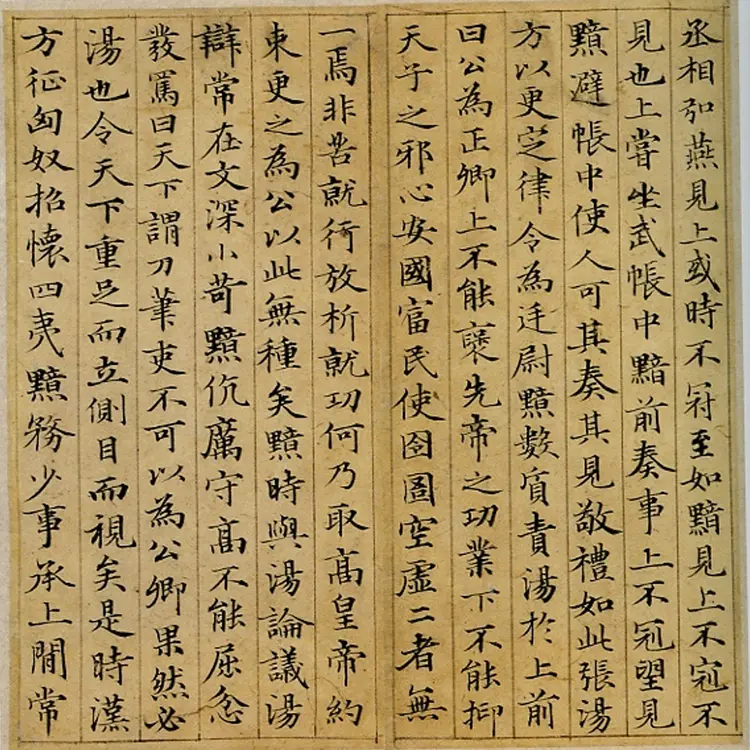 丞相弘燕見上或時不冠至如黯見上不冠不
見也上嘗坐武帳中黯前奏事上不冠望見
黯避帳中使人可其奏其見敬禮如此張湯
方以更定律令為廷尉黯數質責湯於上前
曰公為正卿上不能褒先帝之功業下不能抑
天子之邪心安國富民使囹圄空虛二者無
一焉非苦就行放析就功何乃取高皇帝約
束更之為公以此無種矣黯時與湯論議湯
辯常在文深小苛黯伉厲守高不能屈忿
發罵曰天下謂刀筆吏不可以為公卿果然必
湯也令天下重足而立側目而視矣是時漢
方征匈奴招懷四夷黯務少事承上閒常